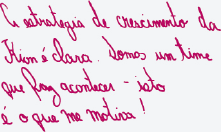 A estratégia de crescimento da
Kion é clara. Somos um time
que faz acontecer - isto
é o que me motiva!